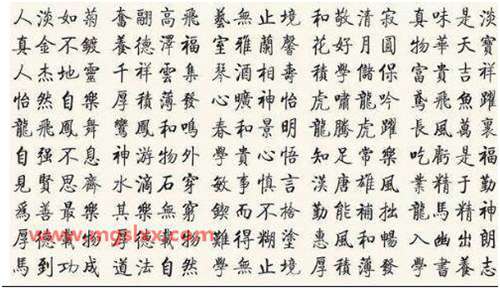 人淡如菊 奮翮高飛 藝無止境 和敬清寂 真味是淡
真金不鍍 養德澤福 室雅蘭馨 花好月圓 物華天寶
人杰地靈 千祥雲集 琴酒相壽 積學儲保 富貴吉祥
怡然自樂 厚積薄發 心曠神怡 虎嘯龍吟 鳶飛魚躍
龍飛鳳舞 鸞鳳和鳴 春和景明 龍騰虎躍 長風萬裏
自强不息 神游物外 學貴心悟 知足常樂 吃虧是福
見賢思齊 水滴石穿 敏事慎言 漢唐雄風 業精于勤
爲善最樂 其樂無窮 鍥而不捨 勤能補拙 龍馬精神
厚 物 難得糊塗 惠風和暢 入幽出朗
馬到功成 道法自然 學無止境 厚積薄發 學書養志